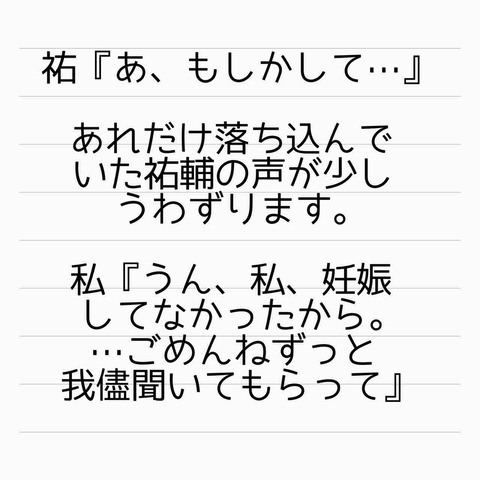 祐『あ、もしかして…』
あれだけ落ち込んで
いた祐輔の声が少し
うわずります。
私『うん、私、妊娠
してなかったから。
…ごめんねずっと
我儘聞いてもらって』